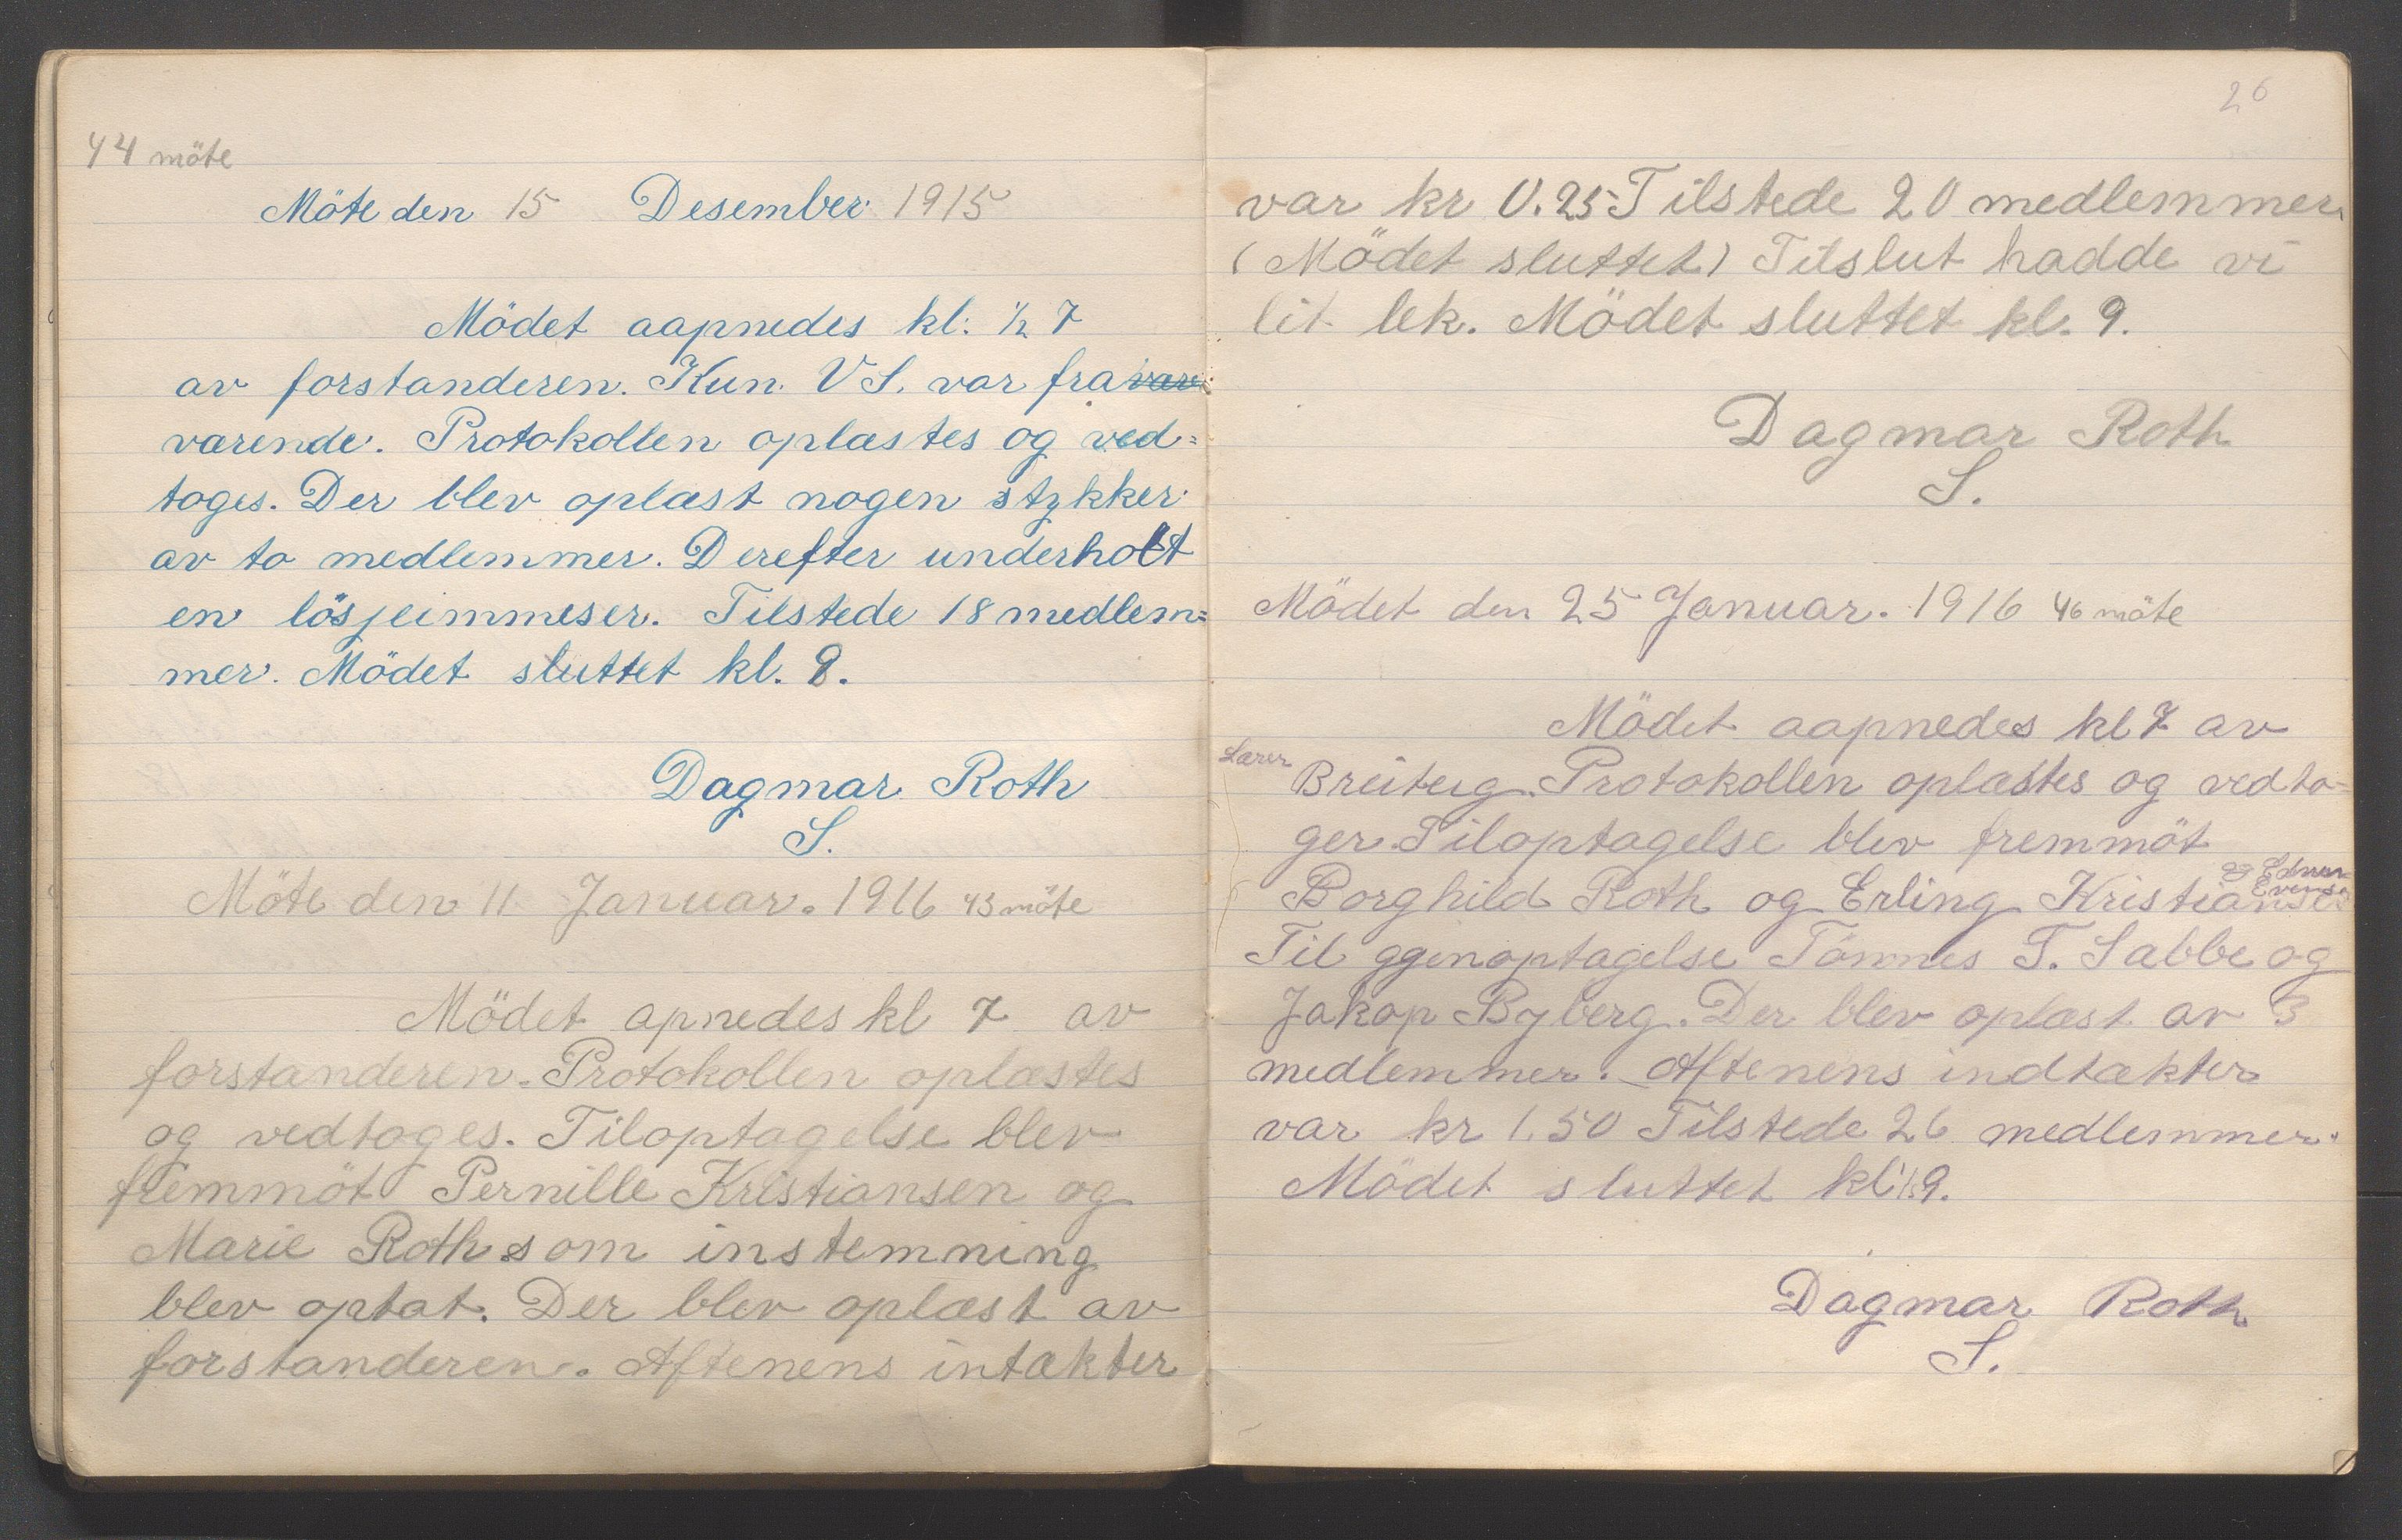 44 möte
Möte den 15 Desember 1915
Mödet aapnedes kl: ½ 7
av forstanderen. Kun. V S. var fra
værende. Protokollen oplæstes og ved=
toges. Der blev oplæst nogen stykker
av to medlemmer. Derefter underholt
en lösjeimmeser. Tilstede 18 medlem=
mer. Mödet sluttet kl. 9.
Dagmar Roth
S.
Möte den 11 Januar. 1916 45 möte
Mödet apnedes kl 7 av
forstanderen. Protokollen oplæstes
og vedtoges. Tiloptagelse blev
fremmöt Pernille Kristiansen og
Marie Roth som instemning
blev optat. Der blev oplæst av
forstanderen. Aftenens intækter
26
var kr 0.25 Tilstede 20 medlemmer.
(Mödet sluttet) Tilslut hadde vi
lit lek. Mödet sluttet kl. 9.
Dagmar Roth
S.
Mödet den 25 Januar. 1916 46 möte
Mödet aapnedes kl 7 av
Lærer
Breiberg. Protokollen oplæstes og vedto=
ges. Tiloptagelse blev fremmöt
og Edmun
Evensen
Borghild Roth og Erling Kristiansen
Til ggenoptagelse Tönnes T. Sabbe og
Jakop Byberg. Der blev oplæst av 3
medlemmer. Aftenens indtækter
var kr 1.50 Tilstede 26 medlemmer.
Mödet sluttet kl ½9.
Dagmar Roth
S.